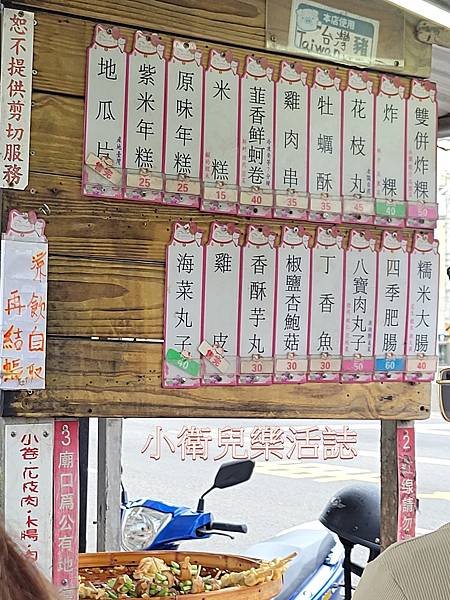 恕不提供剪切服務
本店使用
台灣
Taiwan
豬
地瓜片
紫米年糕
25
原味年糕
25
米糕
15
韮香鮮蚵卷
40
雞肉串
35
牡蠣酥
35
花枝丸
45
炸粿
40
雙併炸粿
50
海菜丸子
40
雞皮
香酥芋丸
30
椒鹽杏鮑菇
30
丁香魚
30
八寶肉丸子
50
四季肥腸
60
糯米大腸
40
飲自取
再結帳
3
廟口為公有地
2
小衛兒樂活誌